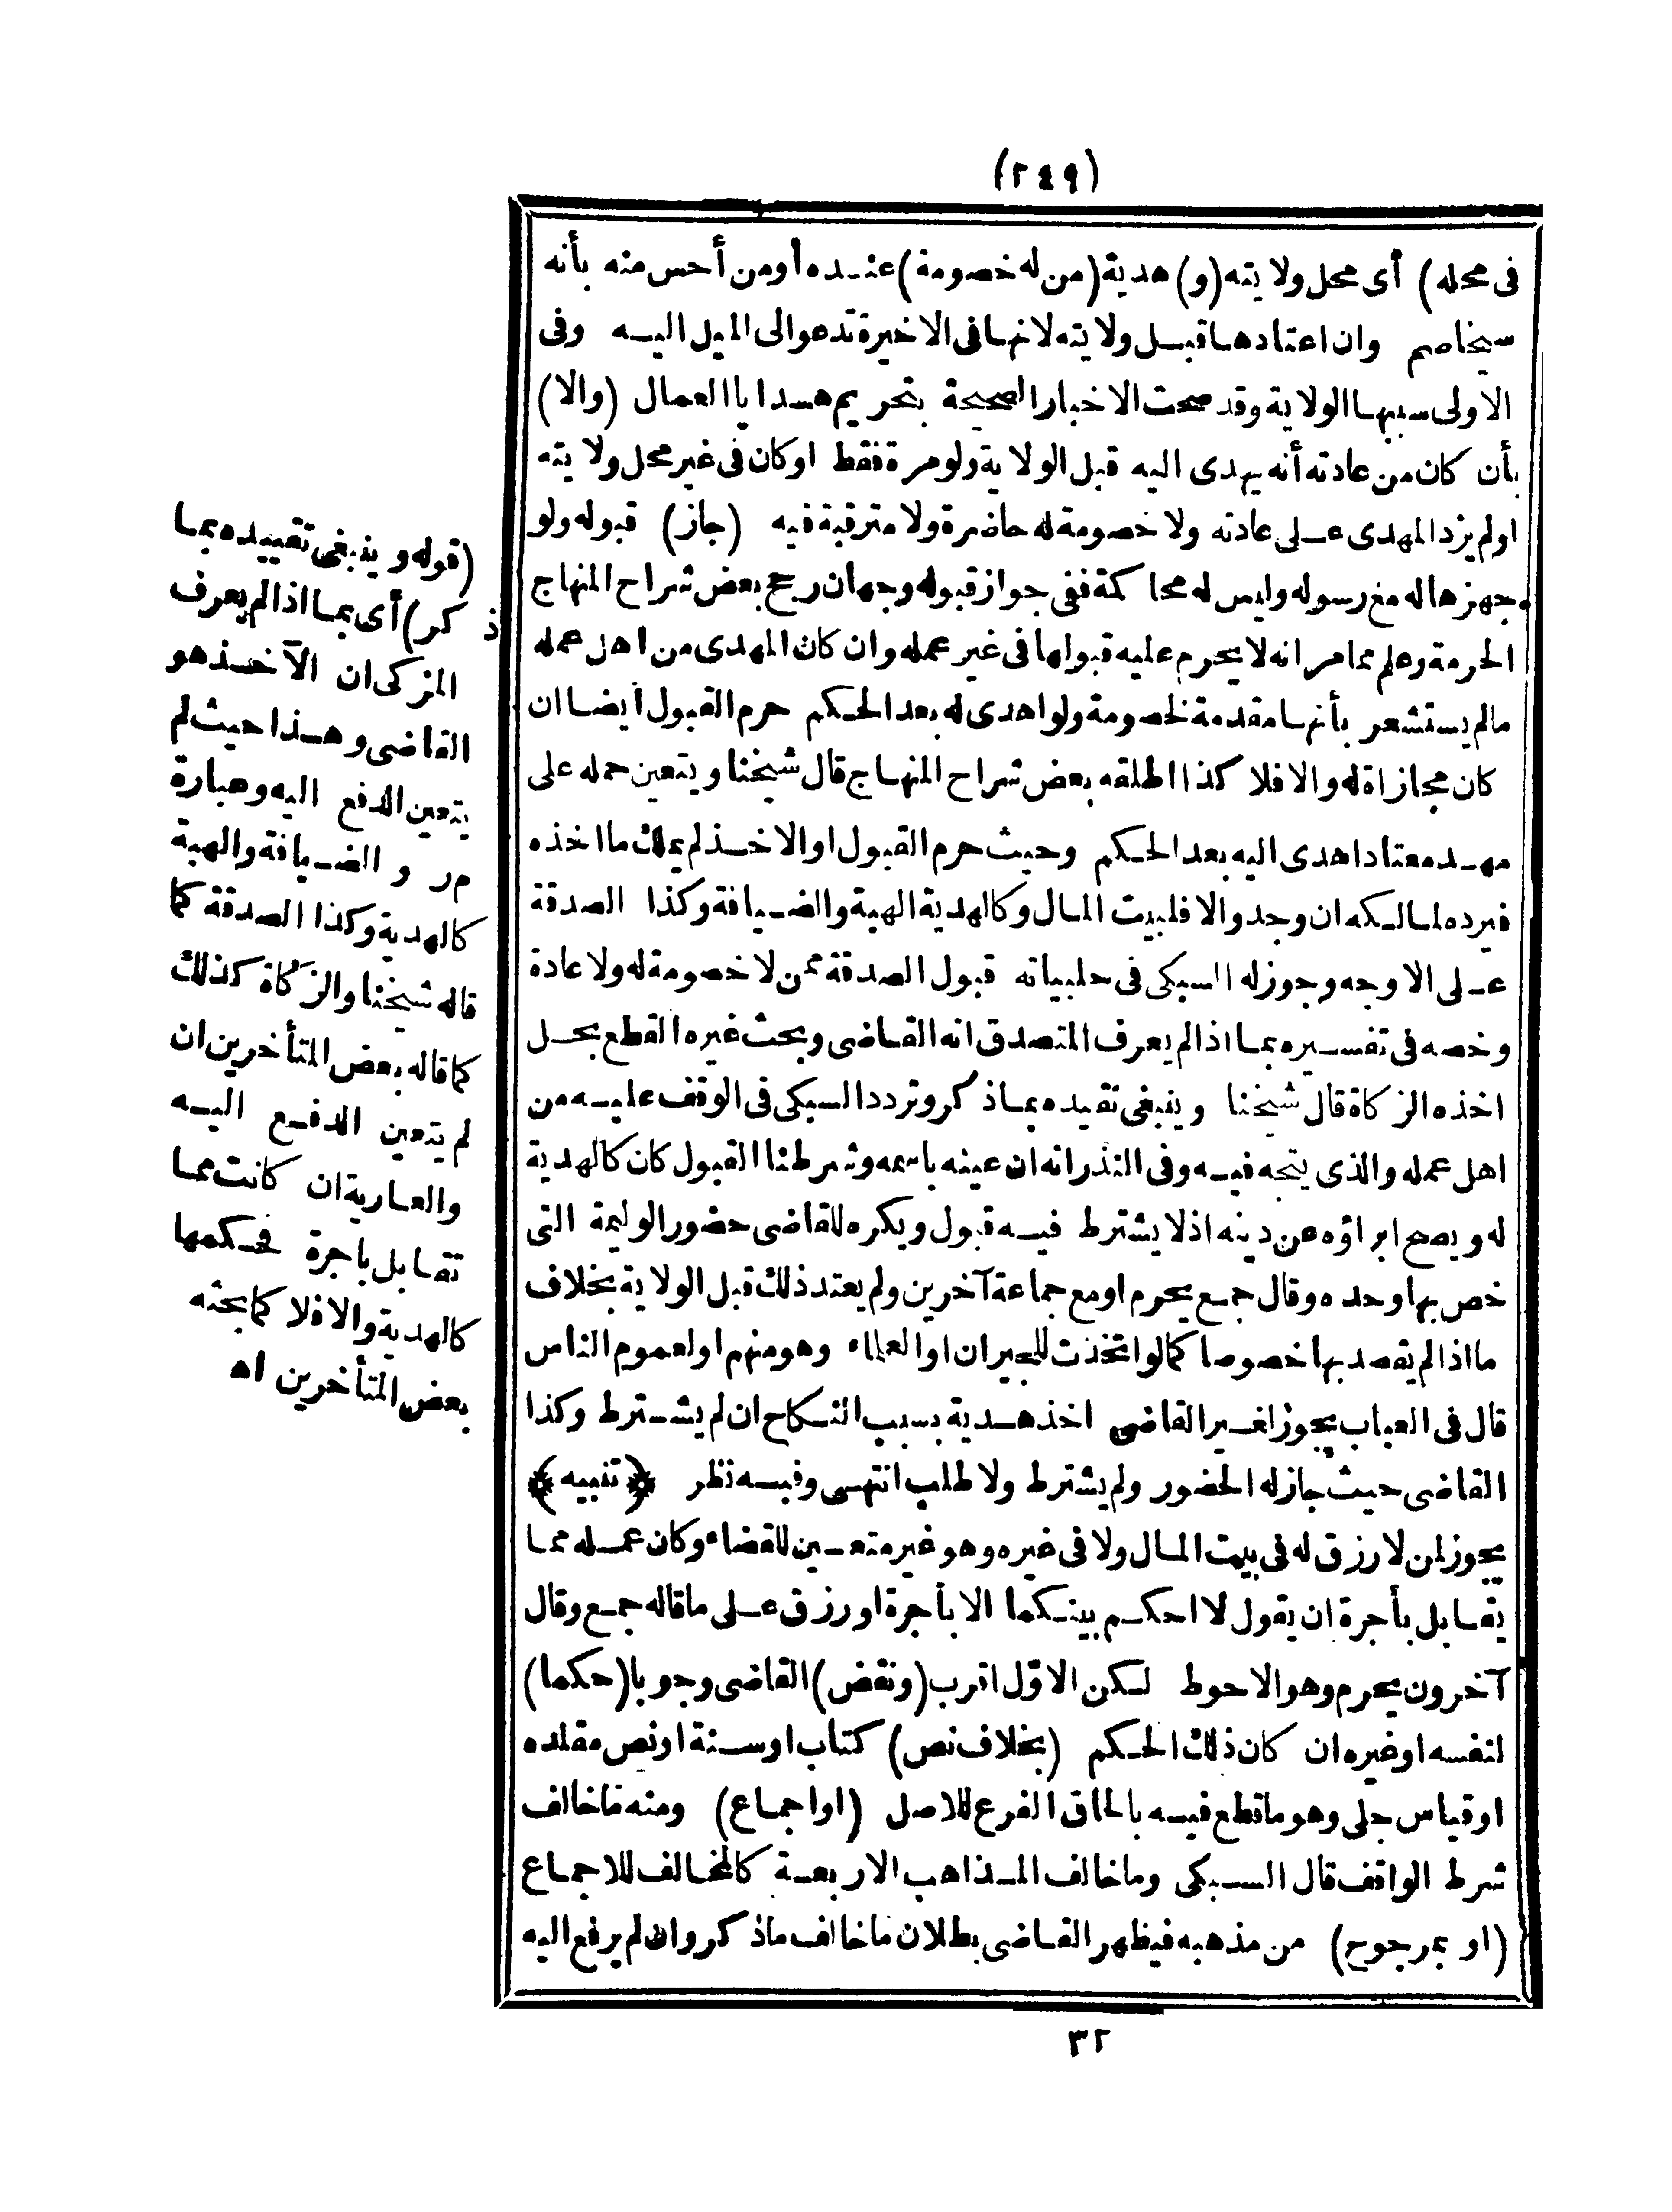 (٢٤٩)
فى محله) أى محل ولايته (و) هدية (من له خصومة) عنده أو من أحس منه بأنه
سيخاصم وان اعتادها قبل ولايته لانها فى الاخيرة تدعو الى الميل اليه وفى
الاولى سببها الولاية وقد صحت الاخبار الصحيحة بتحريم هدايا العمال (والا)
بأن كان من عادته أنه يهدى اليه قبل الولاية ولو مرة فقط او كان فى غير محل ولايته
او لم يزد المهدى على عادته ولا خصومة له حاضرة ولا مترقبة فيه (جاز) قبوله ولو
جهزها له مع رسوله وليس له محاكمة ففى جواز قبوله وجهان رجح بعض شراح المنهاج
الحرمة وعلم مما مر انه لا يحرم عليه قبولها فى غير عمله وان كان المهدى من اهل عمله
مالم يستشعر بأنها مقدمة لخصومة ولو اهدى له بعد الحكم حرم القبول ايضا ان
كان مجازاة له والا فلا كذا اطلقه بعض شراح المنهاج قال شيخنا ويتعين حمله على
مهد معتاد اهدى اليه بعد الحكم وحيث حرم القبول او الاخذ لم يملك ما اخذه
فيرده لمالكه ان وجد والا فلبيت المال وكالهدية الهبة والضيافة وكذا الصدقة
على الاوجه وجوز له السبكى فى حلبياته قبول الصدقة ممن لا خصومة له ولا عادة
وخصه فى تفسيره بما اذا لم يعرف المتصدق انه القاضى وبحث غيره القطع بحل
اخذه الزكاة قال شيخنا وينبغى تقيده بما ذكر وتردد السبكى فى الوقف عليه من
اهل عمله والذى يتجه فيه وفى النذر انه ان عينه باسمه وشرطنا القبول كان كالهدية
له ويصح ابراؤه عن دينه اذ لا يشترط فيه قبول ويكره للقاضى حضور الوليمة التى
خص بها وحده وقال جمع يحرم او مع جماعة آخرين ولم يعتد ذلك قبل الولاية بخلاف
ما اذا لم يقصد بها خصوصا كما لو اتخذت للجيران او العلماء وهو منهم او لعموم الناس
قال فى العباب يجوز لغير القاضى اخذ هدية بسبب النكاح ان لم يشترط وكذا
القاضى حيث جاز له الحضور ولم يشترط ولا طلب انتهى وفيه نظر ﴿تنبيه﴾
يجوز لمن لا رزق له فى بيت المال ولا فى غيره وهو غير متعين للقضاء وكان عمله مما
يقابل بأجرة ان يقول لا احكم بينكما الا بأجرة او رزق على ما قاله جمع وقال
آخرون يحرم وهو الاحوط لكن الاوّل اقرب (ونقض) القاضى وجوبا (حكما)
لنفسه او غيره ان كان ذلك الحكم (بخلاف نص) كتاب او سنة او نص مقلده
او قياس جلى وهو ما قطع فيه بالحاق الفرع للاصل (او اجماع) ومنه ما خالف
شرط الواقف قال السبكى وما خالف المذاهب الاربعة كالمخالف للاجماع
(او بمرجوح) من مذهبه فيظهر القاضى بطلان ما خالف ما ذكر وان لم يرفع اليه
(قوله وينبغى تقييده بما
ذكر) أى بما اذا لم يعرف
المزكى ان الآخذ هو
القاضى وهذا حيث لم
يتعين الدفع اليه وعبارة
م ر والضيافة والهبة
كالهدية وكذا الصدقة كما
قاله شيخنا والزكاة كذلك
كما قاله بعض المتأخرين ان
لم يتعين الدفع اليه
والعارية ان كانت مما
تقابل باجرة فحكمها
كالهدية والا فلا كما بحثه
بعض المتأخرين اه
٣٢